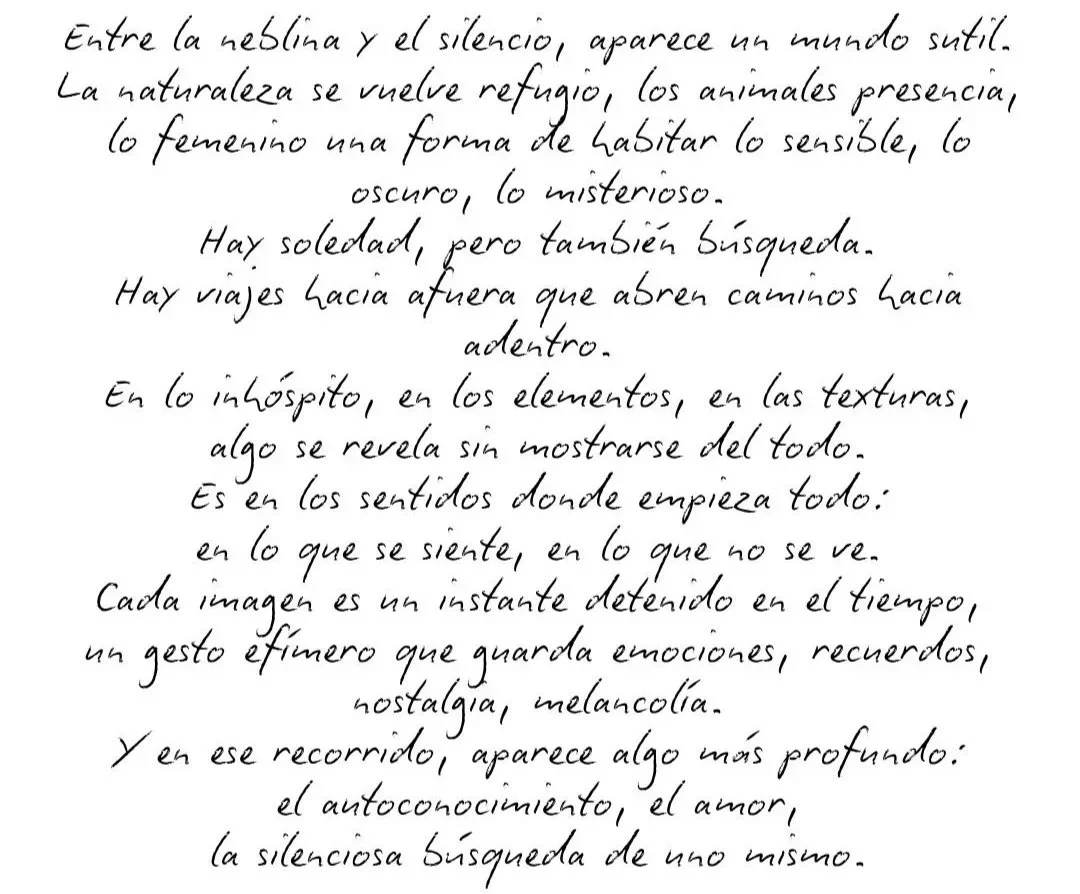 Entre la neblina y el silencio, aparece un mundo sutil.
La naturaleza se vuelve refugio, los animales presencia,
lo femenino una forma de habitar lo sensible, lo
oscuro, lo misterioso.
Hay soledad, pero también búsqueda.
Hay viajes hacia afuera que abren caminos hacia
adentro.
En lo inhóspito, en los elementos, en las texturas,
algo se revela sin mostrarse del todo.
Es en los sentidos donde empieza todo:
en lo que se siente, en lo que no se ve.
Cada imagen es un instante detenido en el tiempo,
un gesto efímero que guarda emociones, recuerdos,
nostalgia, melancolía.
Y en ese recorrido, aparece algo más profundo:
el autoconocimiento, el amor,
la silenciosa búsqueda de uno mismo.